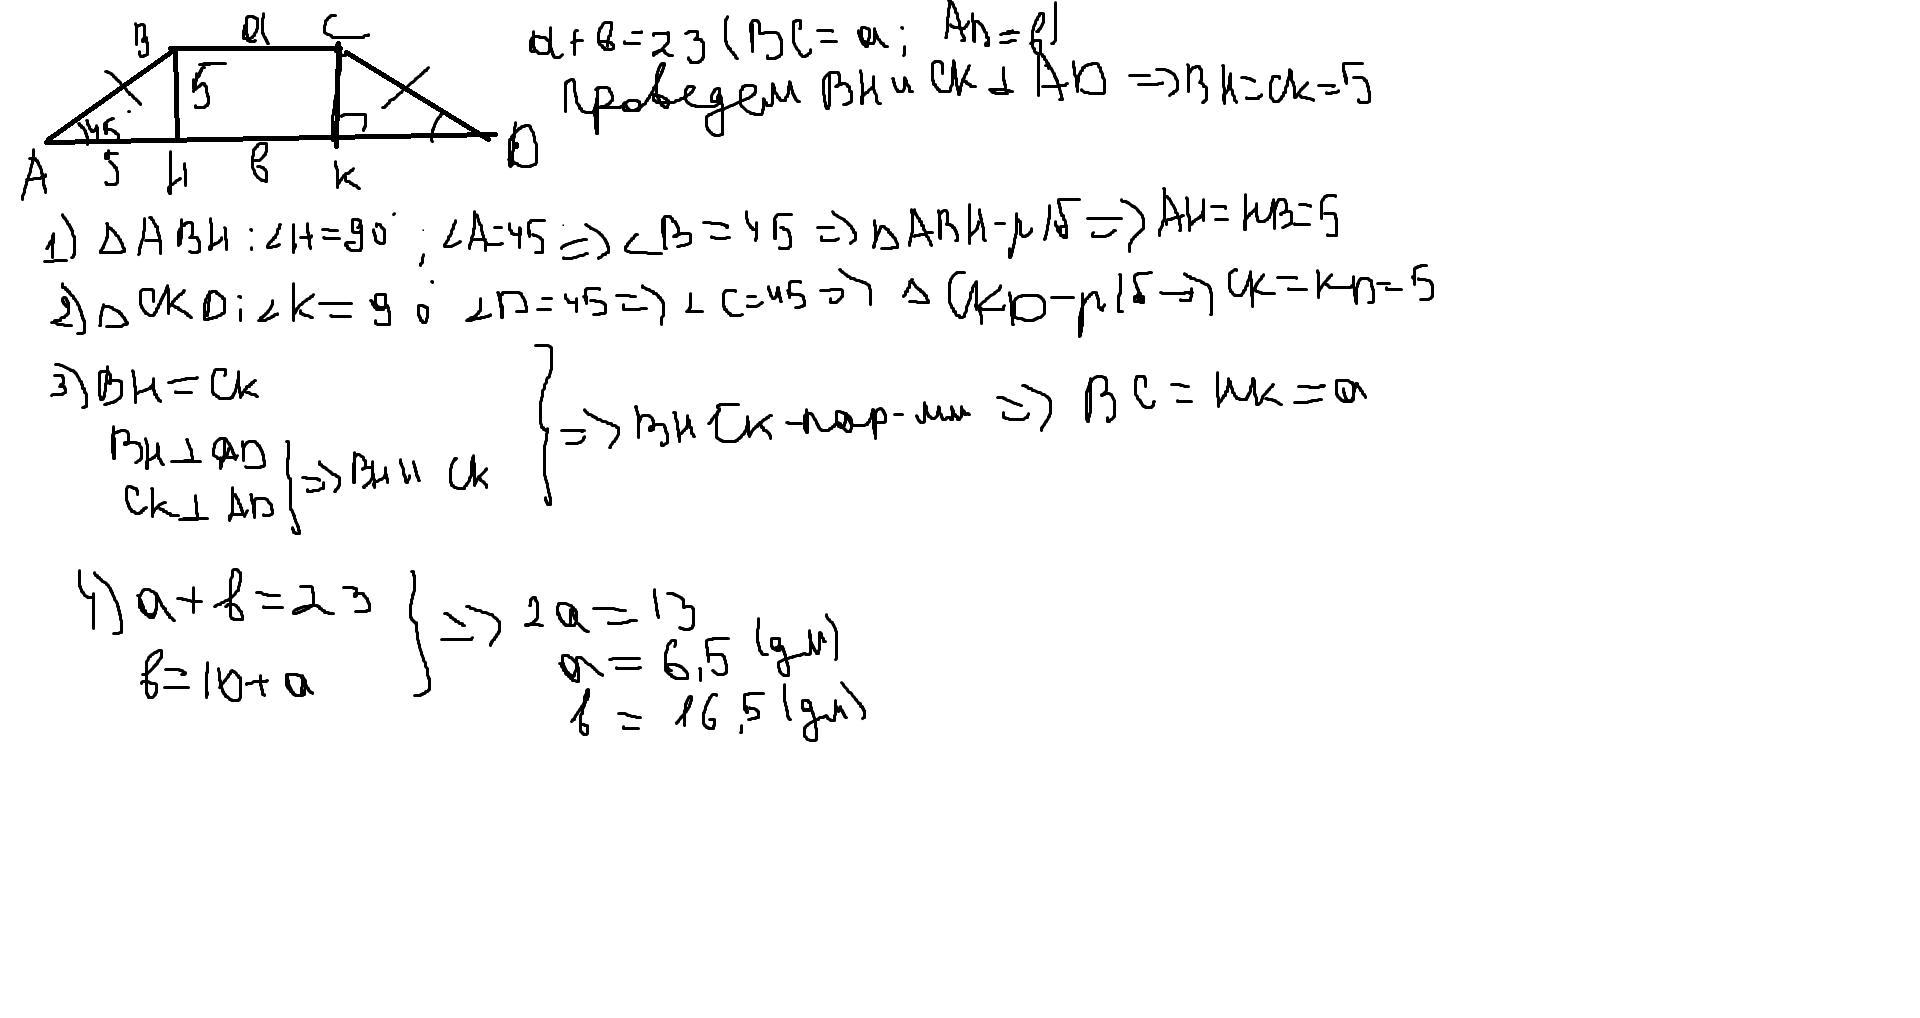 B a C
5
45°
A 5 H в K D
a+в=23 (BC=a; AD=в)
Проведем BH и CK⊥AD =>BH=CK=5
1) △ABH:∠H=90°; ∠A=45=>∠B=45=>△ABH-р/б=>AH=HB=5
2)△CKD:∠K=90° ∠D=45=>∠C=45=>△CKD-р/б=>CK=KD=5
3)BH=CK
BH⊥AD
CK⊥AD
}=>BH॥CK
}=>BHCK-пар-мм=>BC=HK=a
4)a+в=23
в=10+a
}=>2a=13
a=6,5 (дм)
в=16,5(дм)